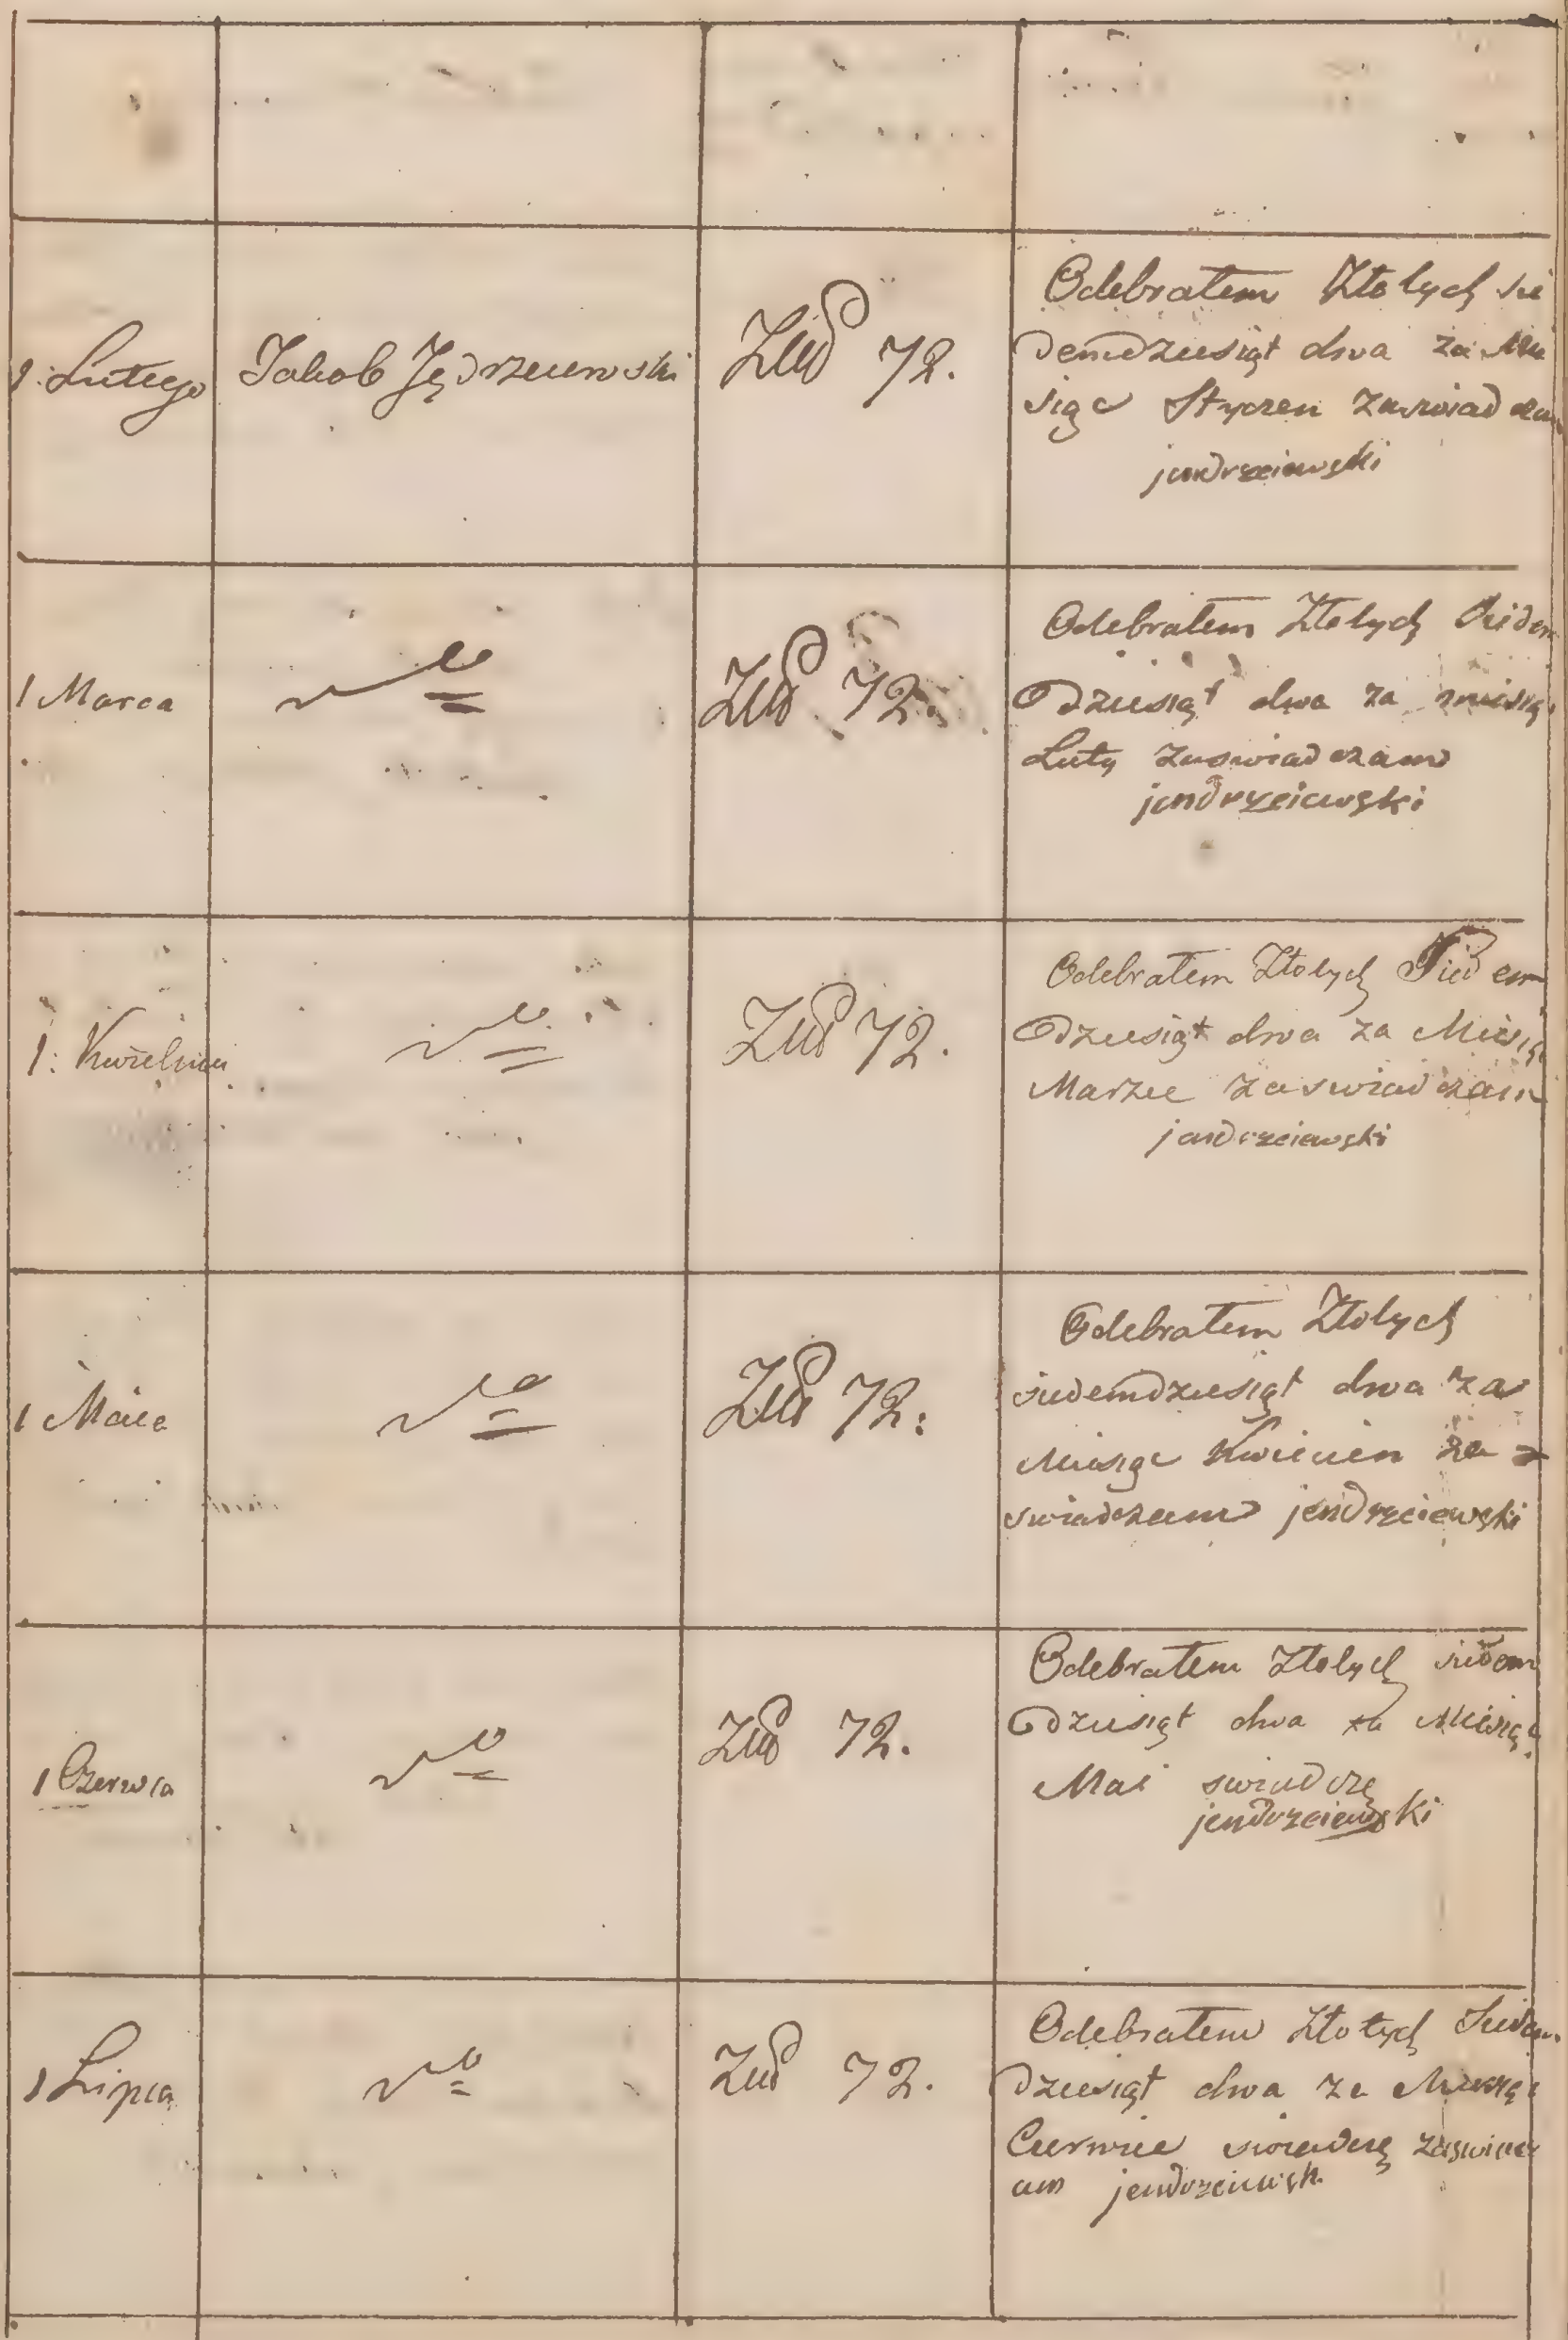 1. Lutego Jakob Jędrzeiewski Złl 72.
Odebrałem Złotych sie
demdziesiąt dwa za Mie
siąc Styczen zaswiadczam
jendrzeiewski
1 Marca Złl 72.
Odebrałem Złotych Siedem
Dziesiąt dwa za miesiąc
Luty zaswiadczam
jendrzeiewski
1. Kwietnia Złl 72.
Odebrałem Złotych Siedem
Dziesiąt dwa za Miesiąc
Marzec zaswiadczam
jendrzeiewski
1 Maia Złl 72.
Odebrałem Złotych
siedemdziesiąt dwa za
Miesiąc Kwiecien za
swiadczam jendrzeiewski
1 Czerwca Złl 72.
Odebrałem Złotych siedem
dziesiąt dwa za Miesiąc
Mai swiadczę
jendrzeiewski
1 Lipca Złl 72.
Odebrałem Złotych Siedem
dziesiąt dwa za Miesiąc
Czerwiec swiadczę
am jendrzeiewski